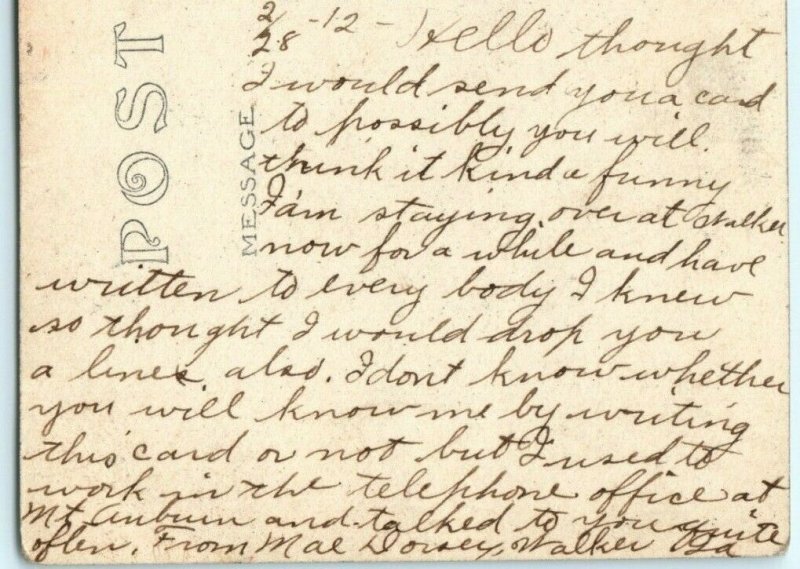 POST
MESSAGE
2/28-12- Hello thought
I would send you a card
to possibly you will.
think it kind a funny
I am staying over at Walker
now for a while and have
written to every body I knew
so thought I would drop you
a lines. also. I dont know whether
you will know me by writing
this card or not but I used to
work in the telephone office at
Mt. Auburn and talked to you quite
often. From Mae Dorsey, Walker Ia